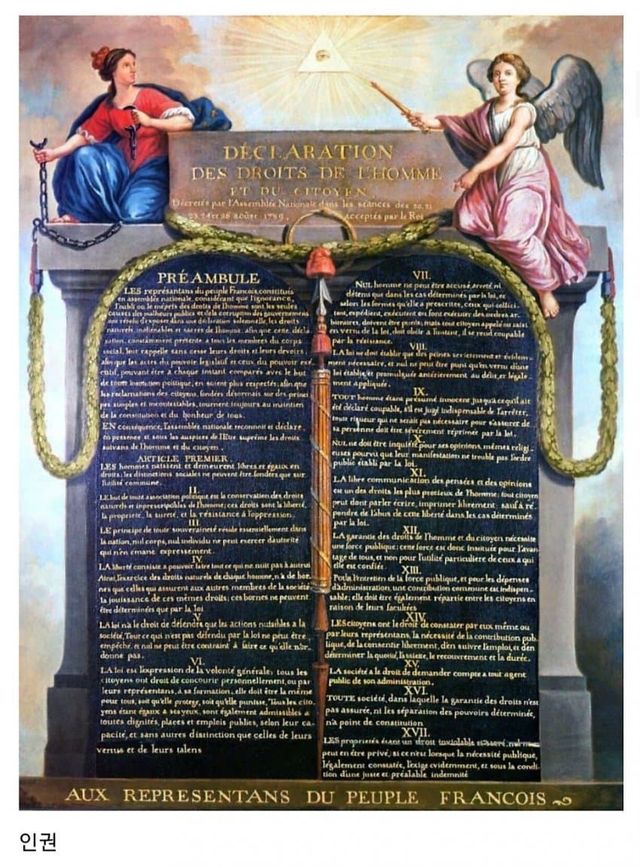 DÉCLARATION
DES DROITS DE L'HOMME
ET DU CITOYEN,
Décrétés par l'Assemblée Nationale dans les séances des 20, 21
23, 24 et 26 août 1789, acceptés par le Roi
PRÉAMBULE
LES représentans du peuple François, constitués
en assemblée nationale, considérant que l'ignorance,
l'oubli ou le mépris des droits de l'homme sont les seules
causes des malheurs publics et de la corruption des gouvernemens
ont résolu d'exposer dans une déclaration solemnelle, les droits
naturels, inaliénables et sacrés de l'homme; afin que cette décla
ration, constamment présente à tous les membres du corps
social, leur rappelle sans cesse leurs droits et leurs devoirs;
afin que les actes du pouvoir législatif et ceux du pouvoir exé
cutif, pouvant être à chaque instant comparés avec le but
de toute institution politique, en soient plus respectés; afin que
les réclamations des citoyens, fondées désormais sur des princi
pes simples et incontestables, tournent toujours au maintien
de la constitution et du bonheur de tous.
EN conséquence, l'assemblée nationale reconnoit et déclare
en présence et sous les auspices de l'Etre suprême les droits
suivans de l'homme et du citoyen.
ARTICLE PREMIER.
LES hommes naissent et demeurent libres et égaux en
droits; les distinctions sociales ne peuvent être fondées que sur
l'utilité commune.
II.
LE but de toute association politique est la conservation des droits
naturels et imprescriptibles de l'homme; ces droits sont la liberté,
la propriété, la sureté, et la résistance à l'oppression.
III.
LE principe de toute souveraineté réside essentiellement dans
la nation, nul corps, nul individu ne peut exercer d'autorité
qui n'en émane expressement.
IV.
LA liberté consiste à pouvoir faire tout ce qui ne nuit pas à autrui
Ainsi, l'exercice des droits naturels de chaque homme, n'a de bor
nes que celles qui assurent aux autres membres de la société
la jouissance de ces mêmes droits; ces bornes ne peuvent
être déterminées que par la loi
V.
LA loi n'a le droit de défendre que les actions nuisibles à la
société. Tout ce qui n'est pas défendu par la loi ne peut être
empêché, et nul ne peut être contraint à faire ce qu'elle n'or-
donne pas.
VI.
LA loi est l'expression de la volonté générale; tous les
citoyens ont droit de concourir personnellement, ou par
leurs représentans, à sa formation; elle doit être la même
pour tous, soit qu'elle protege, soit qu'elle punisse. Tous les cito-
yens étant égaux à ses yeux, sont également admissibles à
toutes dignités, places et emplois publics, selon leur ca-
pacité, et sans autres distinction que celles de leurs
vertus et de leurs talens
VII.
NUL homme ne peut être accusé, arreté ni
détenu que dans les cas déterminés par la loi, et
selon les formes qu'elle a prescrites, ceux qui sollici-
tent, expédient, exécutent ou font exécuter des ordres ar-
bitraires, doivent être punis; mais tout citoyen appelé ou saisi
en vertu de la loi, doit obéir à l'instant, il se rend coupable
par la résistance.
VIII.
LA loi ne doit établir que des peines strictement et évidem-
ment nécessaire, et nul ne peut être puni qu'en vertu d'une
loi établie et promulguée antérierement au délit, et légale-
ment appliquée.
IX.
TOUT homme étant présumé innocent jusqu'à ce qu'il ait
été déclaré coupable, s'il est jugé indispensable de l'arrêter,
toute rigueur qui ne serait pas nécessaire pour s'assurer de
sa personne doit être sévèrement réprimée par la loi.
X.
NUL ne doit être inquiété pour ses opinions, mêmes religi-
euses pourvû que leur manifestation ne trouble pas l'ordre
public établi par la loi.
XI.
LA libre communication des pensées et des opinions
est un des droits les plus precieux de l'homme; tout citoyen
peut donc parler écrire, imprimer librement: sauf à ré-
pondre de l'abus de cette liberté dans les cas déterminés
par la loi.
XII.
LA garantie des droits de l'homme et du citoyen nécessite
une force publique; cette force est donc instituée pour l'avan-
tage de tous, et non pour l'utilité particuliere de ceux a qui
elle est confiée.
XIII.
POUR l'entretien de la force publique, et pour les dépenses
d'administration, une contribution commune est indispen-
sable; elle doit être également répartie entre les citoyens en
raison de leurs facultées
XIV.
LES citoyens ont le droit de constater par eux même ou
par leurs représentans, la nécessité de la contribution pub-
lique, de la consentir librement, d'en suivre l'emploi, et d'en
déterminer la quotité, l'assiette, le recouvrement et la durée.
XV.
LA société a le droit de demander compte a tout agent
public de son administration.
XVI.
TOUTE société, dans laquelle la garantie des droits n'est
pas assurée, ni les séparation des pouvoirs déterminée,
n'a point de constitution.
XVII.
LES propriétés étant un droit inviolable et sacré, nul ne
peut en être privé, si ce n'est lorsque la nécessité publique,
légalement constatée, l'exige evidemment, et sous la condi-
tion d'une juste et préalable indemnité
AUX REPRESENTANS DU PEUPLE FRANCOIS
인권